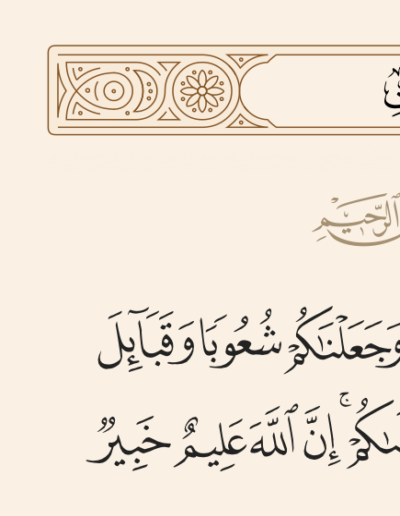 ٱلرَّحِيمِ
وَجَعَلْنَـٰكُمْ شُعُوبًا وَقَبَآئِلَ
إِنَّ ٱللَّهَ عَلِيمٌ خَبِيرٌ